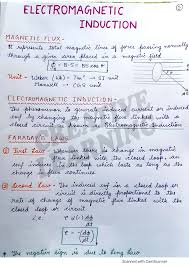 ELECTROMAGNETIC
INDUCTION
MAGNETIC FLUX-
It represents total magnetic lines of force passing normally
through a given area placed in a magnetic field
ϕ = B·S = BS cos θ
Unit - Weber (Wb) → SI unit
Maxwell → CGS unit
ELECTROMAGNETIC INDUCTION
The phenomenon to generate induced current or induced
emf by changing the magnetic flux linked with the closed
circuit is known as Electromagnetic Induction
FARADAY'S LAWS
① First Law Whenever there is change in magnetic
flux linked with the closed loop, an emf
induces in the loop which lasts as long as the
change in flux continues
② Second Law - The induced emf in a closed loop or
circuit is directly proportional to the
rate of change of magnetic flux linked with the
closed loop or circuit
e ∝ dϕ/dt
e = -dϕ/dt
The negative sign is due to Lenz law
Scanned with CamScanner